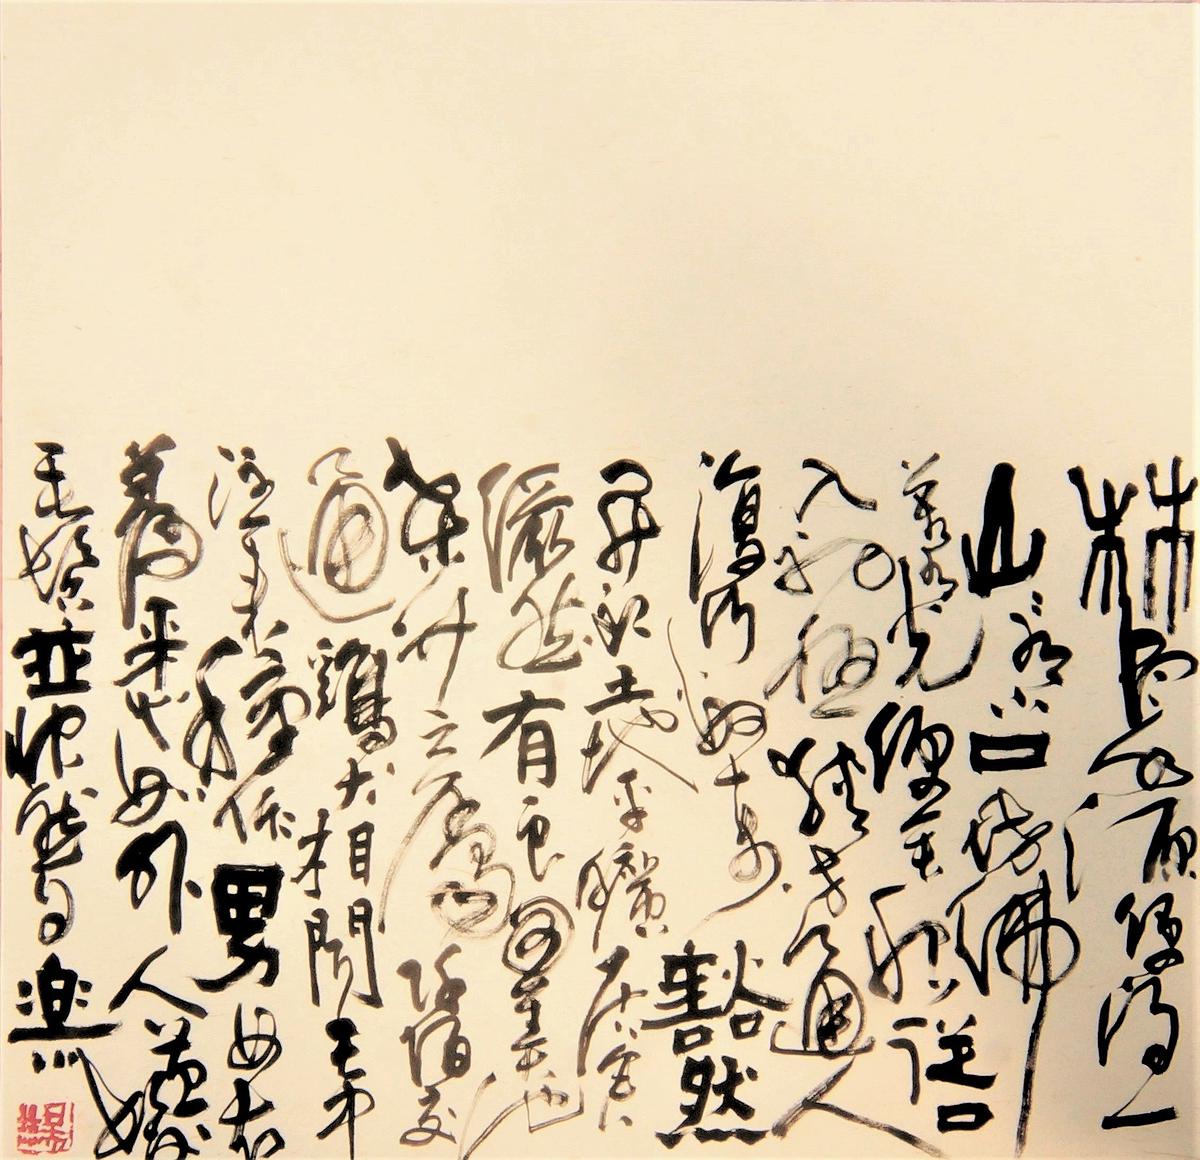 林盡水源便得一
山有小口彷彿
若有光便舍船從口
入初極狹才通人
復行數十步豁然
開朗土地平曠屋舍
儼然有良田美池
桑竹之屬阡陌交
通雞犬相聞其中
往來種作男女衣
著悉如外人黃髮
垂髫並怡然自樂